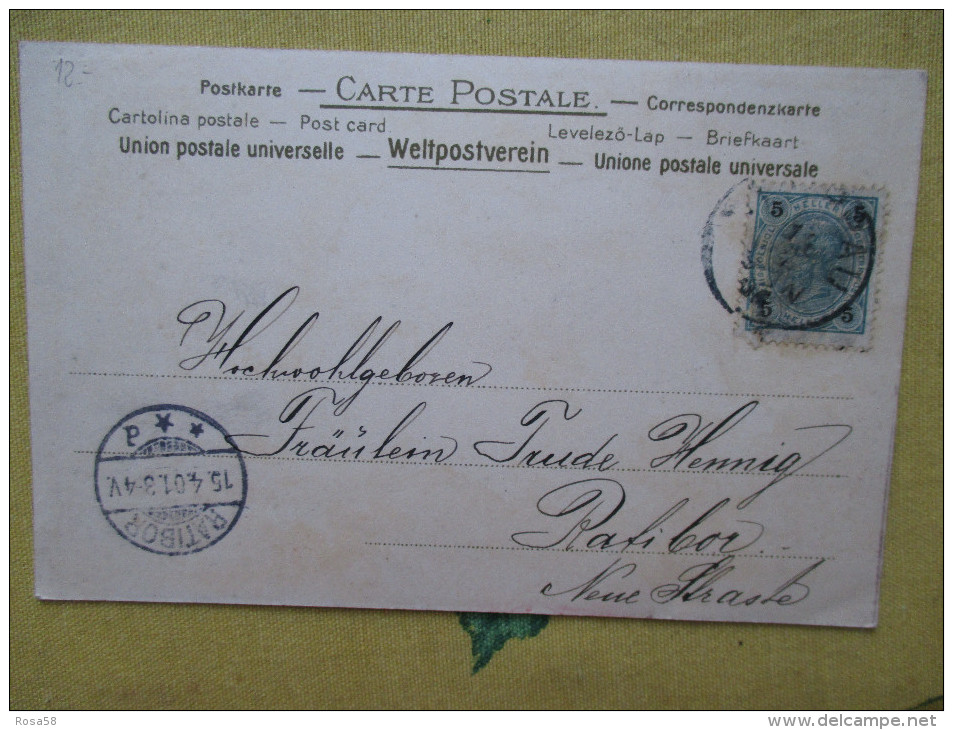 12.-
Postkarte — CARTE POSTALE. — Correspondenzkarte
Cartolina postale — Post card. Levelező-Lap — Briefkaart
Union postale universelle — Weltpostverein — Unione postale universale
5 HELLER 5
5 HELLER 5
Hochwohlgeboren
Fräulein Trude Hennig
Ratibor.
Neue Straße
P
15.4.01.3-4V.
RATIBOR
Rosa58
www.delcampe.net